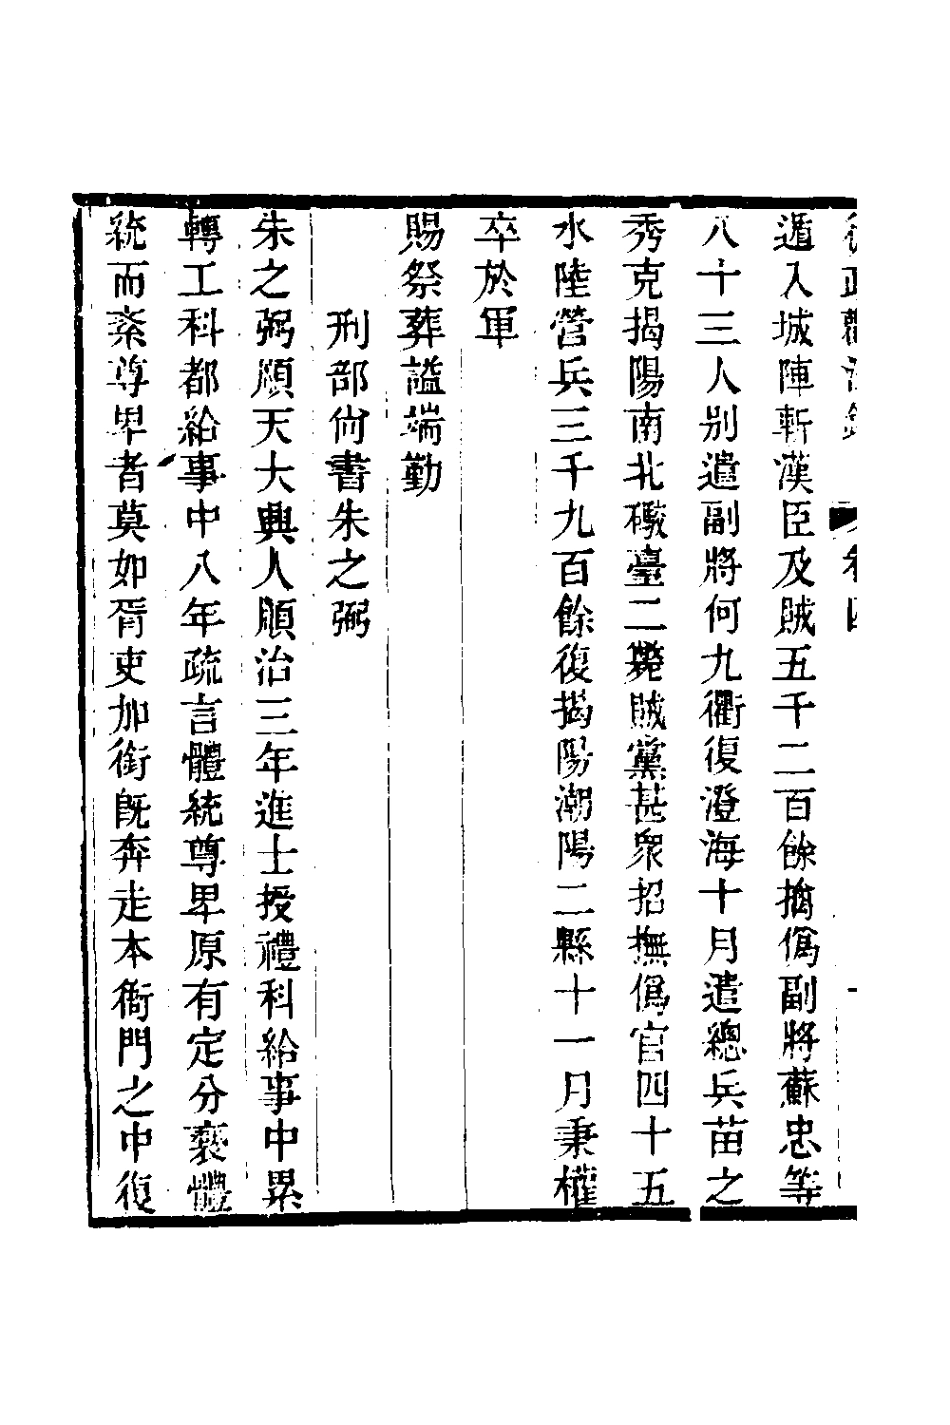 遁入城陣斬漢臣及賊五千二百餘擒僞副將蘇忠等
八十三人别遣副將何九衢復澄海十月遣總兵苗之
秀克揭陽南北礮臺二賊黨甚衆招撫僞官四十五
水陸營兵三千九百餘復揭陽潮陽二縣十一月秉權
卒於軍
賜祭葬諡端勤
刑部尙書朱之弼
朱之弼順天大興人順治三年進士授禮科給事中累
轉工科都給事中八年疏言體統尊卑原有定分褻體
統而紊尊卑者莫如胥吏加銜旣奔走本衙門之中復